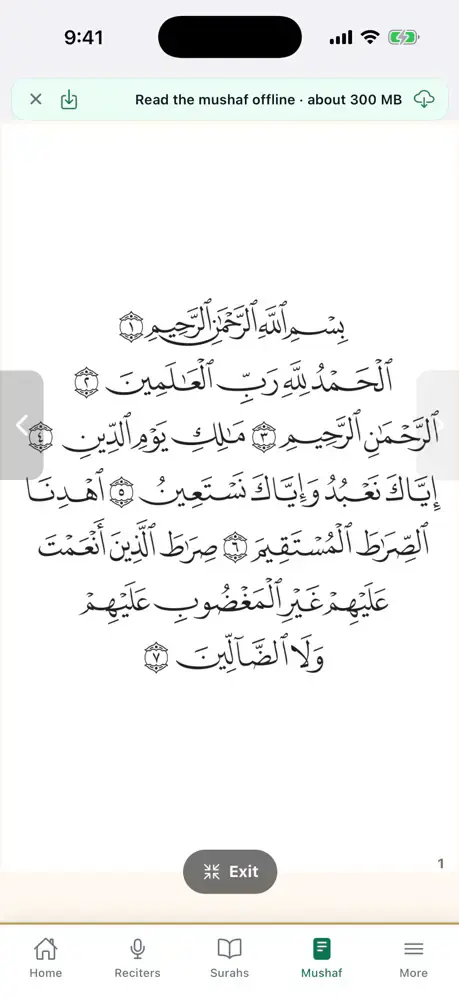 9:41
Read the mushaf offline · about 300 MB
بِسْمِ ٱللَّهِ ٱلرَّحْمَٰنِ ٱلرَّحِيمِ ١
ٱلْحَمْدُ لِلَّهِ رَبِّ ٱلْعَٰلَمِينَ ٢
ٱلرَّحْمَٰنِ ٱلرَّحِيمِ ٣ مَٰلِكِ يَوْمِ ٱلدِّينِ ٤
إِيَّاكَ نَعْبُدُ وَإِيَّاكَ نَسْتَعِينُ ٥ ٱهْدِنَا
ٱلصِّرَٰطَ ٱلْمُسْتَقِيمَ ٦ صِرَٰطَ ٱلَّذِينَ أَنْعَمْتَ
عَلَيْهِمْ غَيْرِ ٱلْمَغْضُوبِ عَلَيْهِمْ
وَلَا ٱلضَّآلِّينَ ٧
1
Exit
Home Reciters Surahs Mushaf More